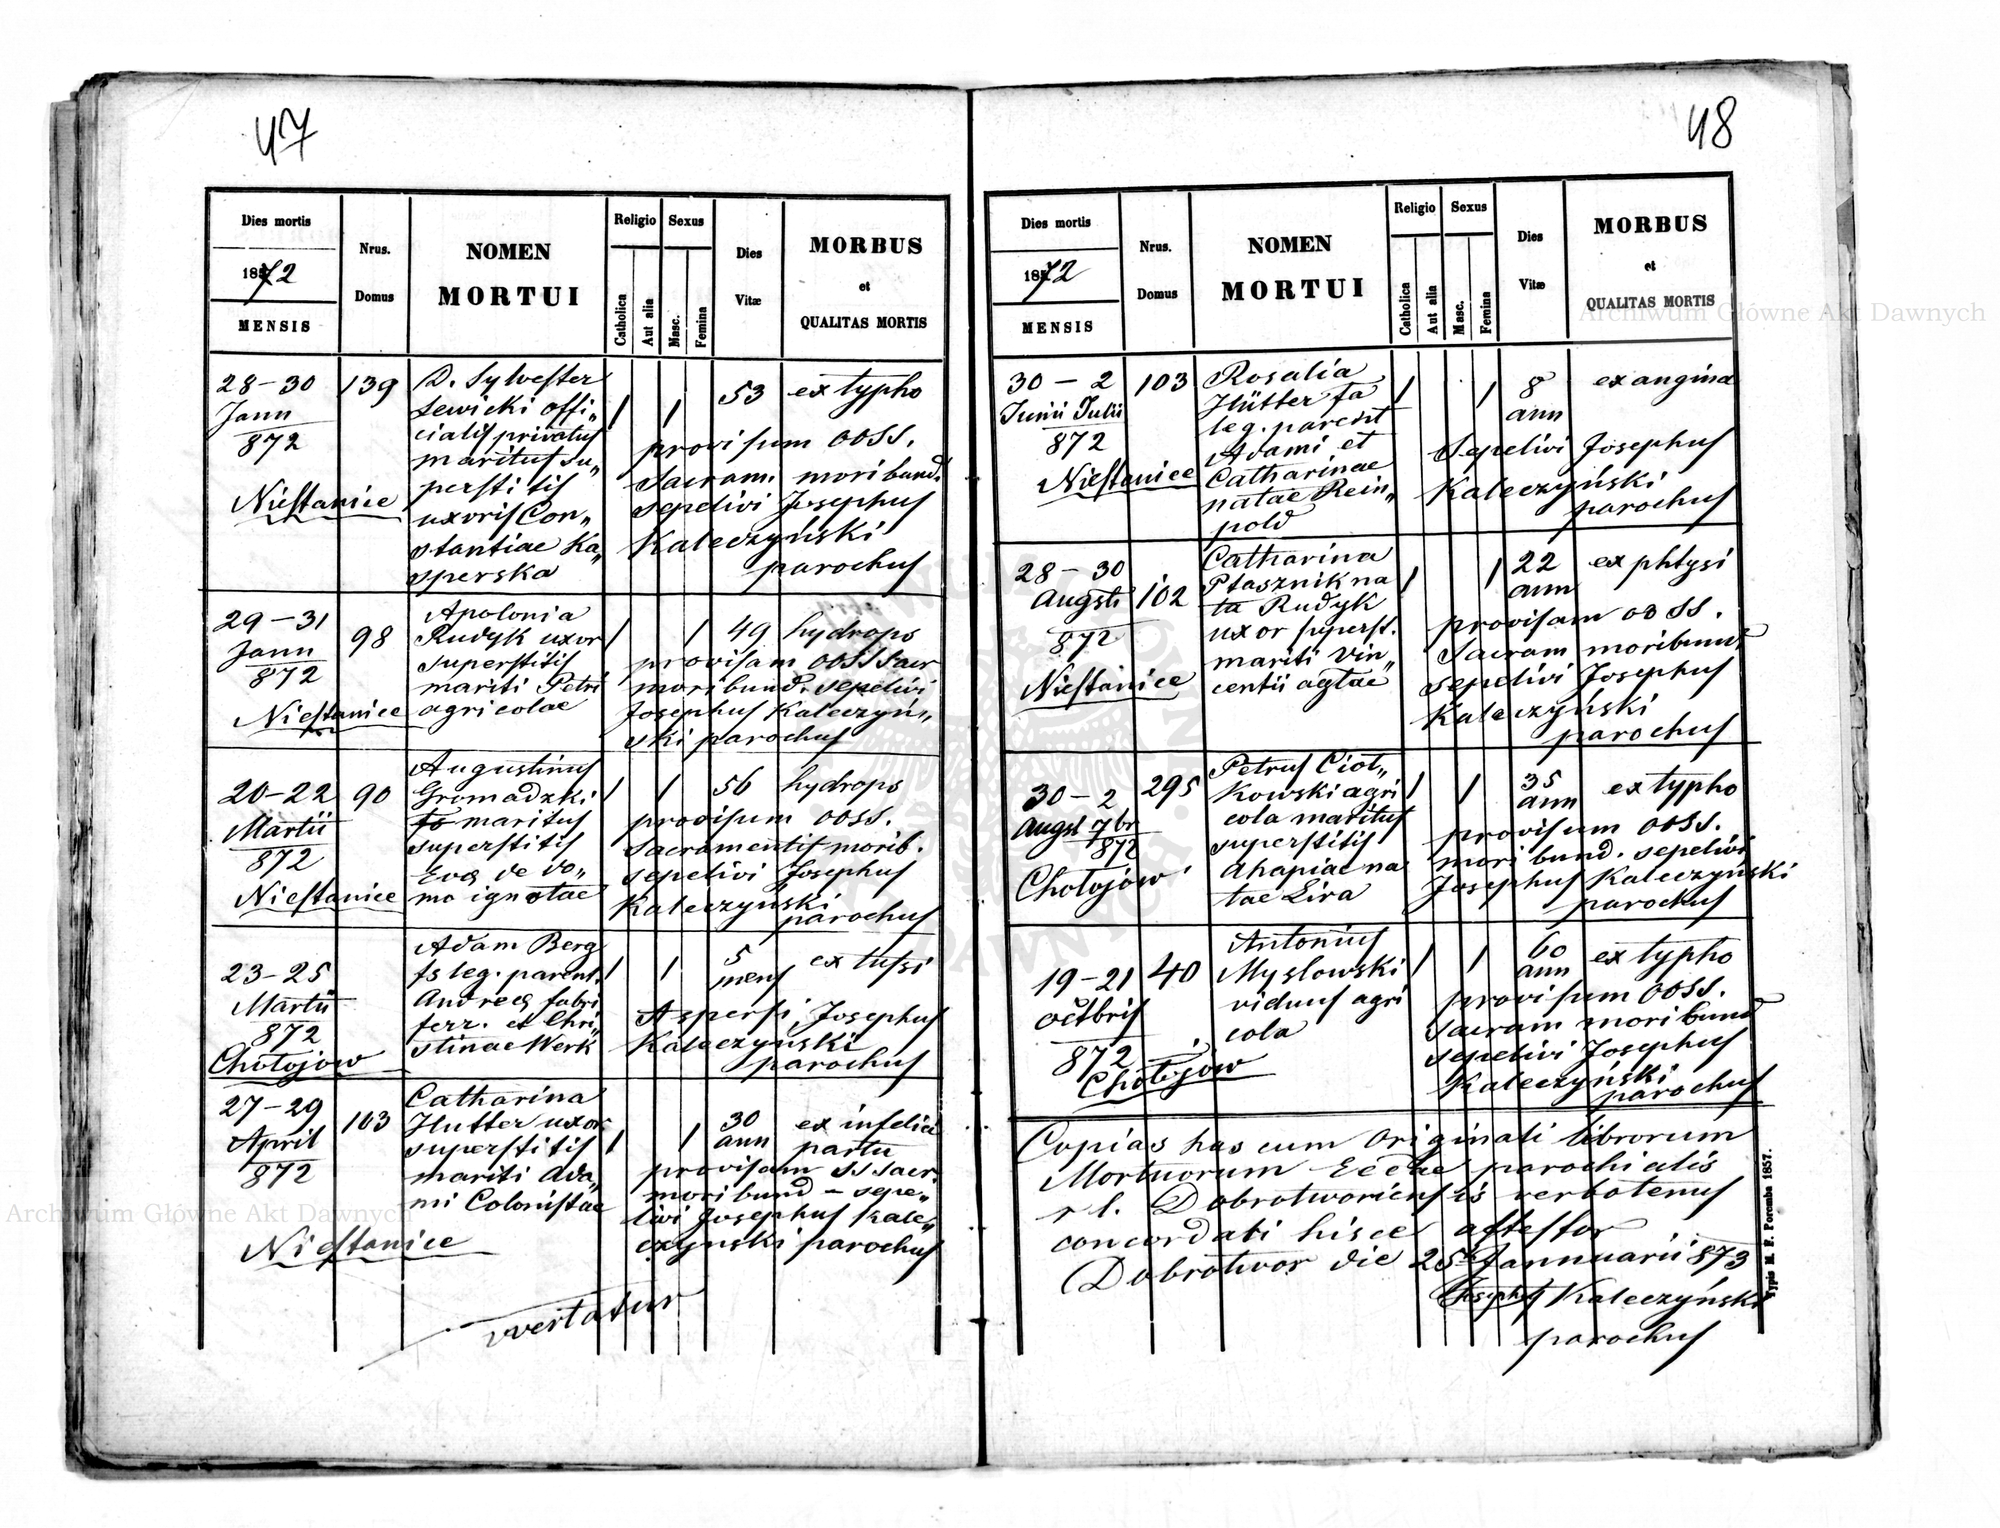 47
Dies mortis
1872
MENSIS
Nrus.
Domus
NOMEN
MORTUI
Religio
Catholica
Aut alia
Sexus
Masc.
Femina
Dies
Vitæ
MORBUS
et
QUALITAS MORTIS
28-30
Jann
872
Niestanice
139
D. Sylvester
Lewicki offi„
cialis privatus
maritus su„
perstitis
uxoris Con„
stantiae Ka„
sperska
1 1
53
ex typho
provisum OOSS.
Sacram. moribund.
sepelivi Josephus
Kaleczyński
parochus
29-31
Jann
872
Niestanice
98
Apolonia
Rudyk uxor
superstitis
mariti Petri
agricolae
1 1
49
hydrops
provisam OOSS Sacr
moribund. sepelivi
Josephus Kaleczyń„
ski parochus
20-22
Martii
872
Niestanice
90
Augustinus
Gromadzki
fs maritus
superstitis
Evæ de do„
mo ignotae
1 1
56
hydrops
provisum OOSS.
Sacramentis morib.
sepelivi Josephus
Kaleczyński
parochus
23-25
Martii
872
Chołojow
Adam Berg
fs leg. parent.
Andreæ fabri
ferr. et Chri„
stinae Werk
1 1
5
mens
ex tussi
Aspersi Josephus
Kaleczyński
parochus
27-29
April
872
Niestanice
103
Catharina
Hutter uxor
superstitis
mariti Ada„
mi Colonistae
1 1
30
ann
ex infelici
partu
provisam SS sacr.
moribund - sepe„
livi Josephus Kale„
czynski parochus
vvertatur
48
Dies mortis
1872
MENSIS
Nrus.
Domus
NOMEN
MORTUI
Religio
Catholica
Aut alia
Sexus
Masc.
Femina
Dies
Vitæ
MORBUS
et
QUALITAS MORTIS
30 - 2
Junii Julii
872
Niestanice
103
Rosalia
Hütter fa
leg. parent
Adami et
Catharinae
natae Rein„
pold
1 1
8
ann
ex angina
Sepelivi Josephus
Kaleczyński
parochus
28-30
Augsti
872
Niestanice
102
Catharina
Ptasznik na
ta Rudyk
uxor superst.
mariti Vin„
centii agtae
1 1
22
ann
ex phtysi
provisam OOSS.
Sacram moribund
sepelivi Josephus
Kaleczyński
parochus
30-2
Augst 7br
872
Chołojów
295
Petrus Ciot„
kowski agri
cola maritus
superstitis
Ahapiae na
tae Lira
1 1
35
ann
ex typho
provisum OOSS.
moribund. sepelivi
Josephus Kaleczyński
parochus
19-21
Octbris
872
Chołojów
40
Antonius
Myslowski
viduus agri
cola
1 1
60
ann
ex typho
provisum OOSS.
Sacram moribund
sepelivi Josephus
Kaleczyński
parochus
Copias has cum Originali librorum
Mortuorum Eccłae parochialis
r l. Dobrotworiensis verbotenus
concordati hisce attestor
Dobrotwor die 25 Jannuarii 873
Josephus Kaleczyński
parochus
Typis M. F. Poremba 1857.
Archiwum Główne Akt Dawnych
Archiwum Główne Akt Dawnych